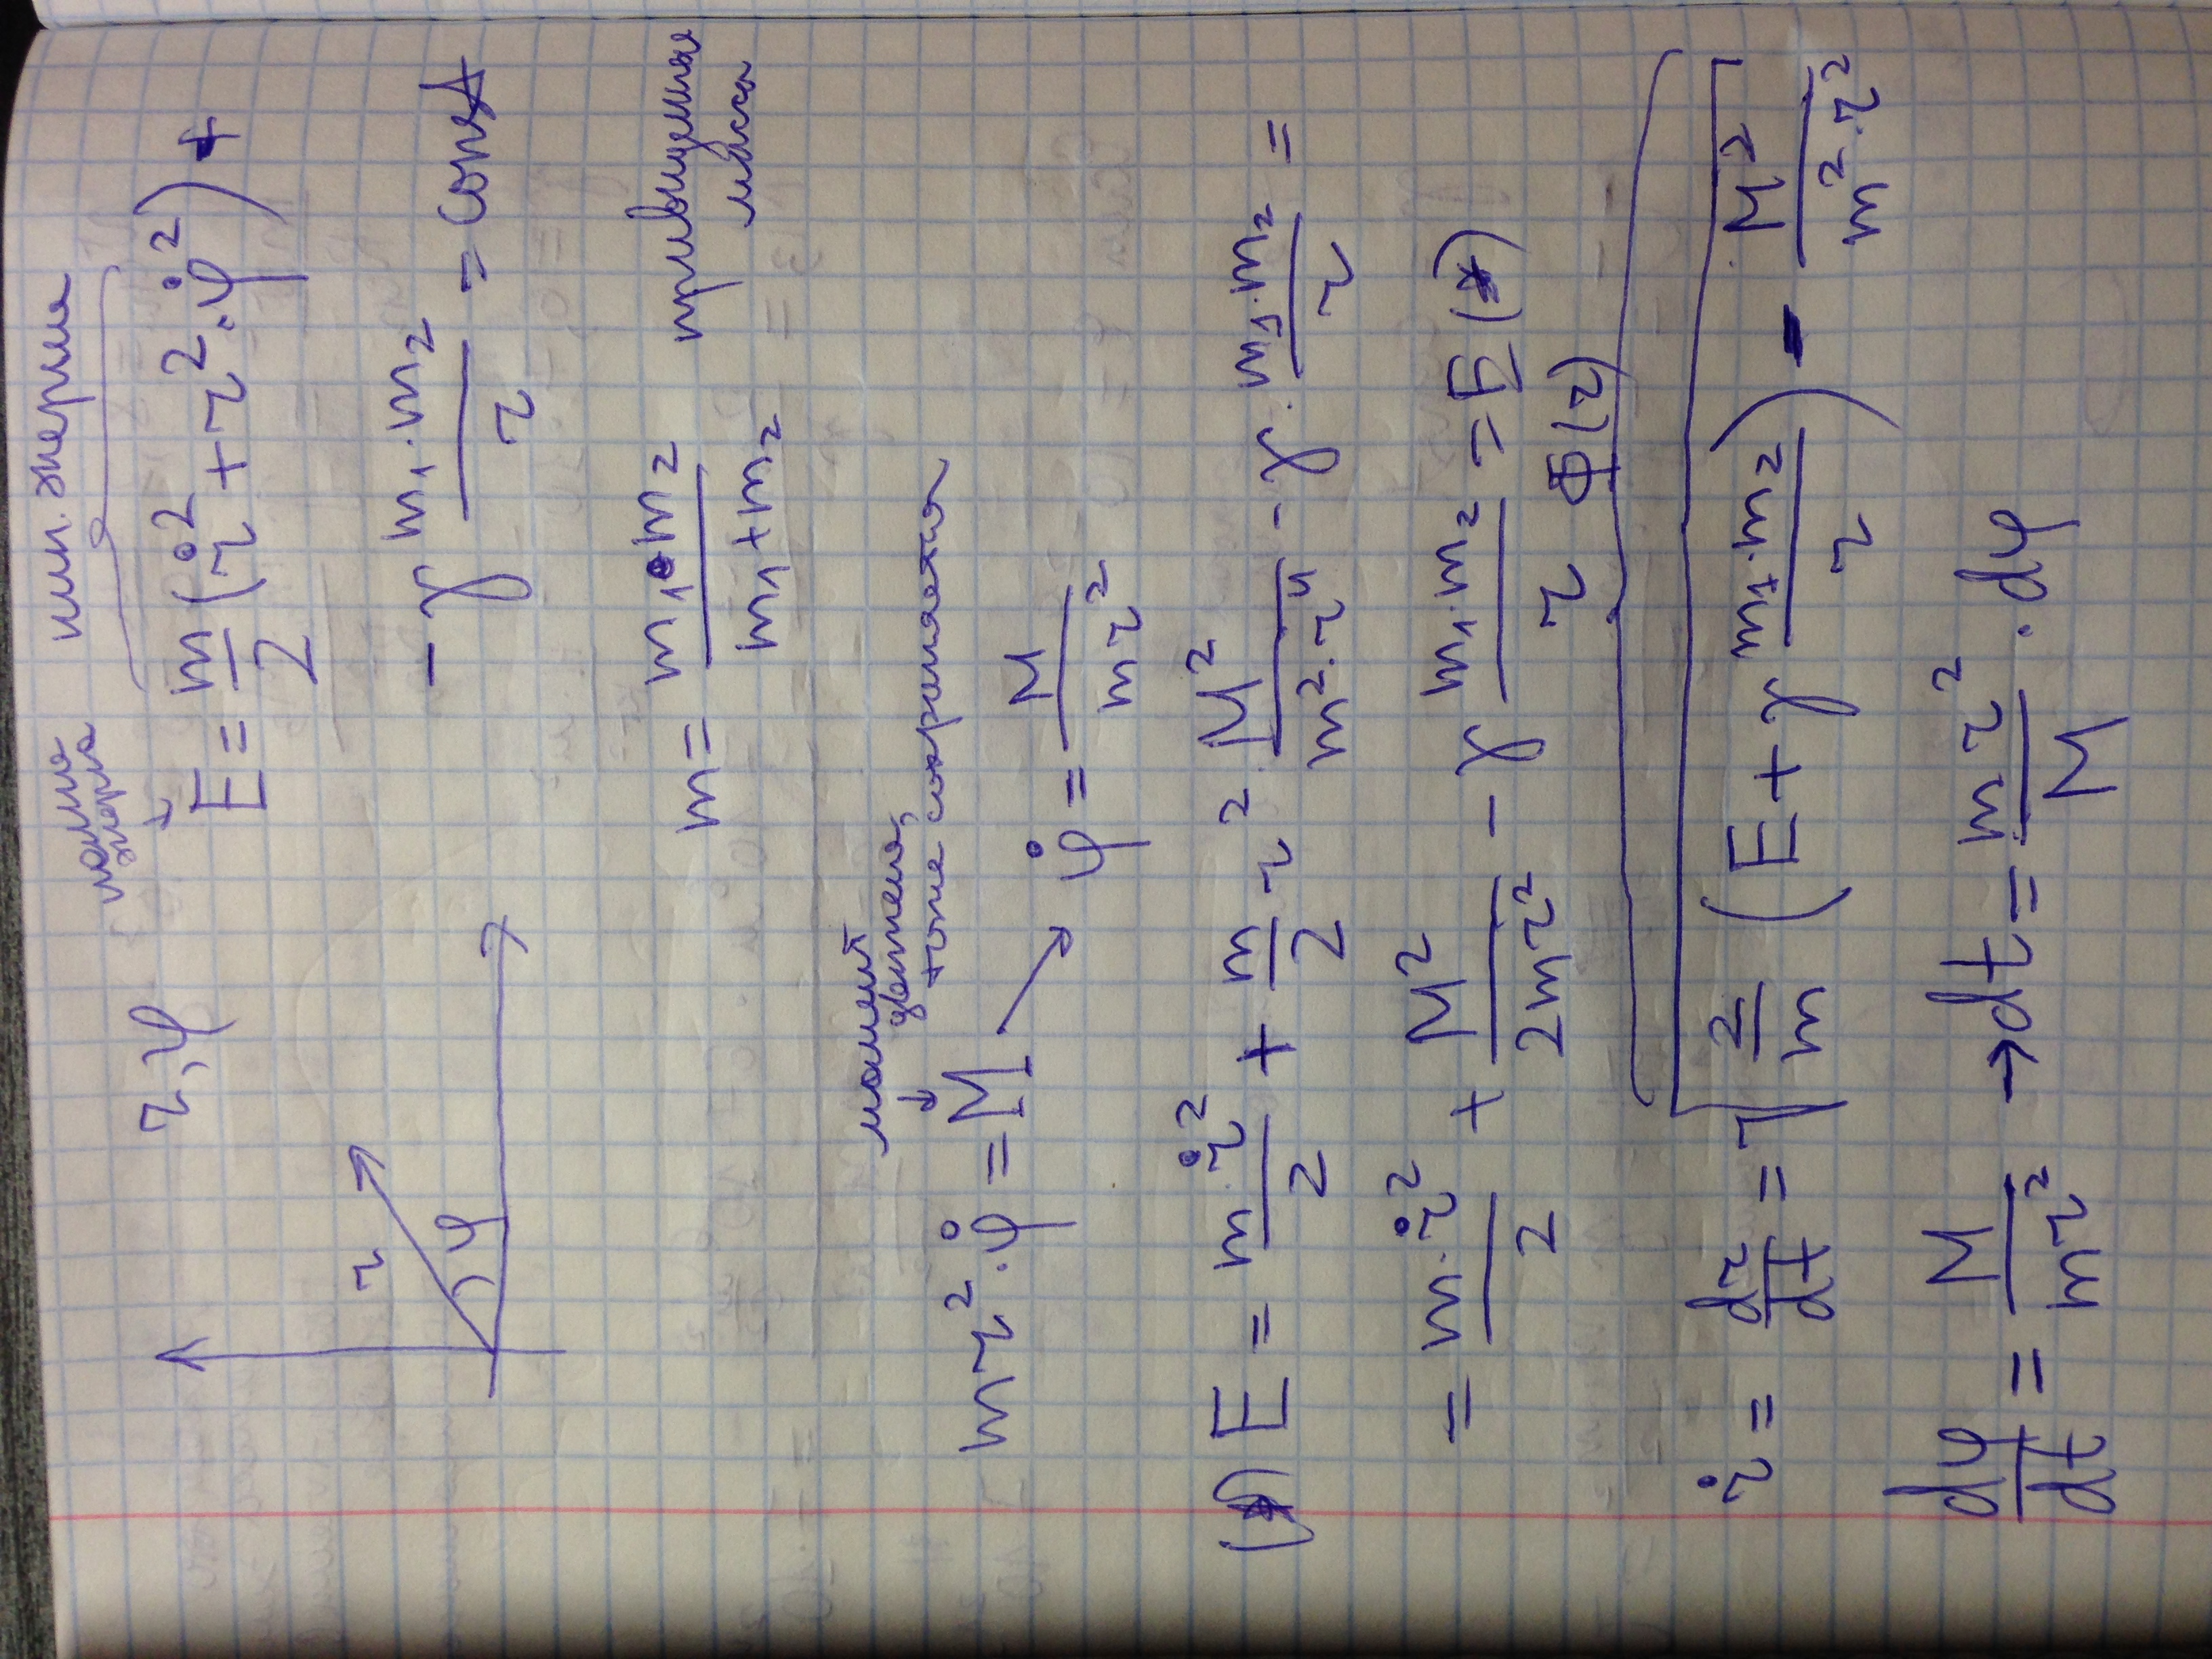 r, φ
полная энергия
кин. энергия
E = m/2 (ṙ² + r²·φ̇²) +
- γ m₁·m₂/r = const
m = m₁·m₂/(m₁+m₂) приведённые массы
момент
движения,
тоже сохраняется
mr²·φ̇ = M → φ̇ = M/mr²
(*) E = m·ṙ²/2 + m/2·r²·M²/m²·r⁴ - γ·m₁·m₂/r =
= m·ṙ²/2 + M²/2mr² - γ m₁·m₂/r = E (*)
Ф(r)
ṙ = dr/dt = √(2/m (E + γ m₁·m₂/r) - M²/m²·r²)
dφ/dt = M/mr² → dt = mr²/M · dφ